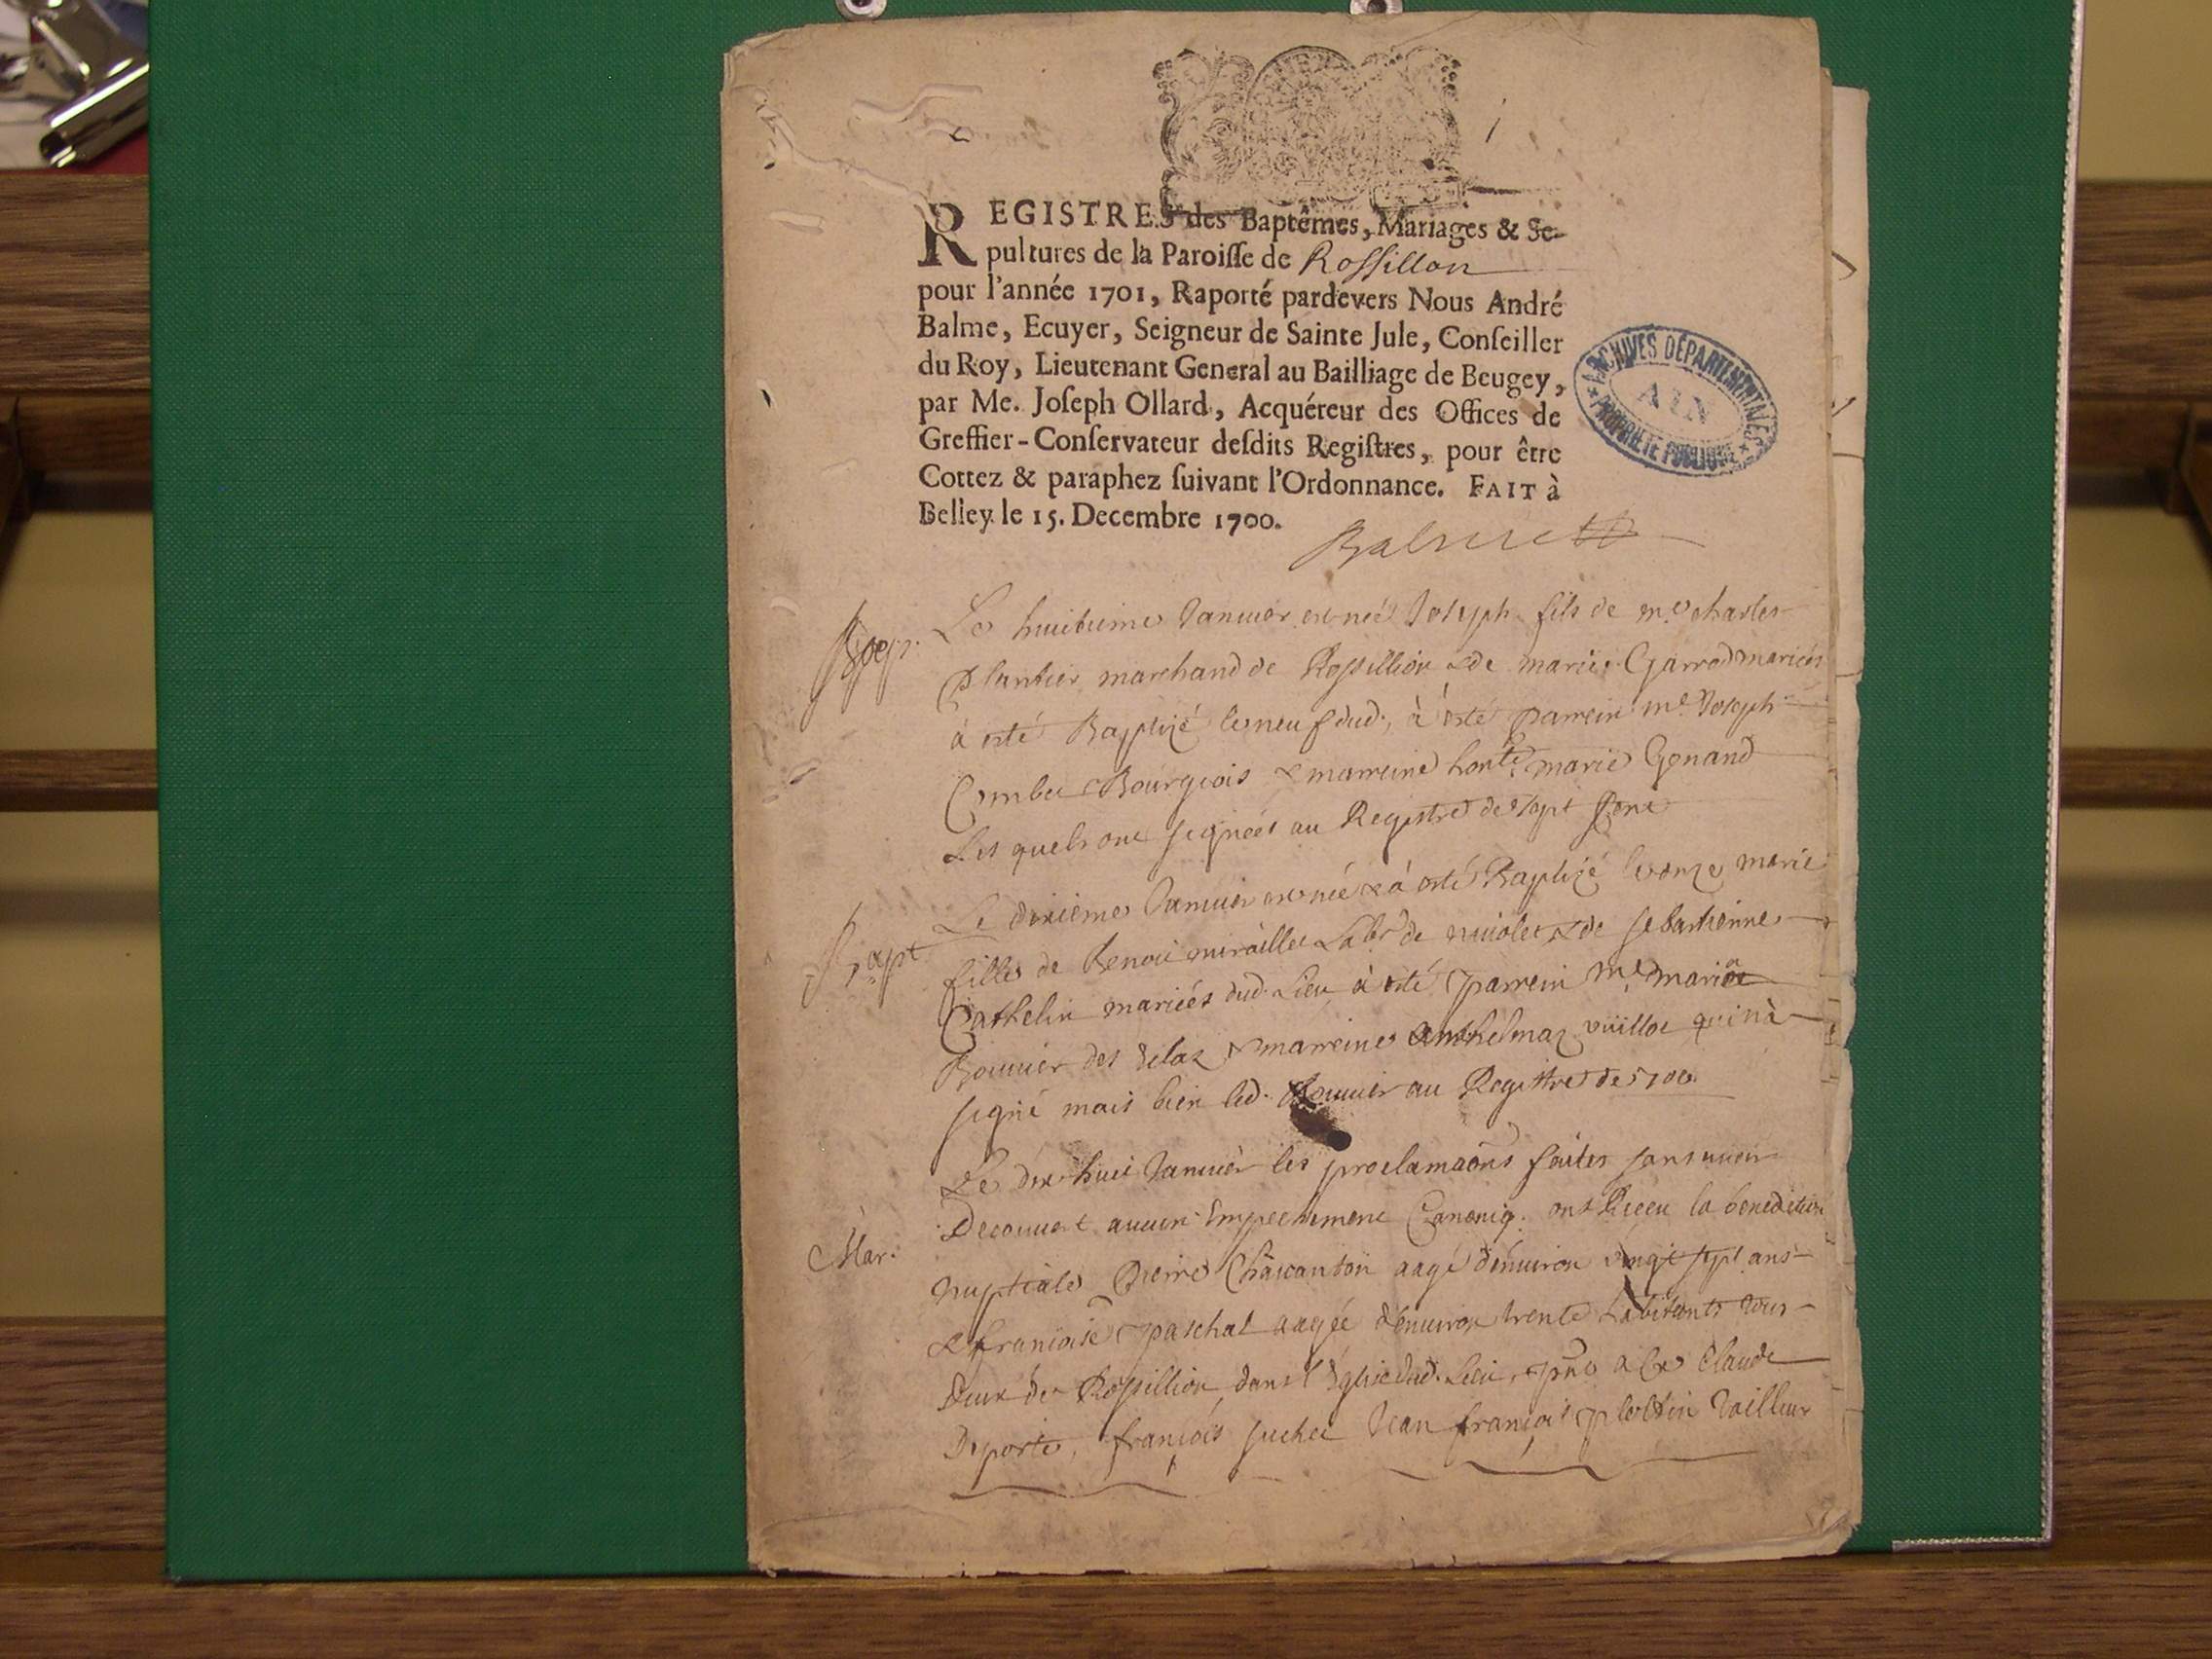 REGISTRES des Baptêmes, Mariages & Se-
pultures de la Paroisse de Rossillon
pour l'année 1701, Raporté pardevers Nous André
Balme, Ecuyer, Seigneur de Sainte Jule, Conseiller
du Roy, Lieutenant General au Bailliage de Beugey,
par Me. Joseph Ollard, Acquéreur des Offices de
Greffier-Conservateur desdits Registres, pour être
Cottez & paraphez suivant l'Ordonnance. FAIT à
Belley le 15. Decembre 1700.
ARCHIVES DÉPARTEMENTALES
AIN
PROPRIÉTÉ PUBLIQUE
Le huitieme Janvier est né Joseph fils de me charles
plantier marchand de Rossillion & de marie Garrod mariés
à esté Baptizé le neuf dud., à esté parrein me Joseph
Combet Bourgeois & marreine honte marie Gonand
Les quels ont signées au Registre de sept cent
Bapt.
Le dixieme Janvier est née & à esté Baptizé le onze marie
fille de Benoit miraillet Labr de & de sebastienne
Cathelin mariés dud. Lieu à esté parrein me
Bouvier des delaz & marreine anthelmaz vüillot qui nà
signé mais bien led. Bouvier au Registre de 1700
Le dix huit Janvier les proclamaons faites sans avoir
Decouvert aucun Empechement Canoniq. ont Receu la benediction
Mar.
nuptiale Pierre aagé dénviron vingt sept ans
& françoise paschal aagée dénviron trente habitants tous
Deux de Rossillion dans l'Eglise dud. Lieu, pns a Ce Claude
Deporte, françois suchet Jean françois plottin Tailleur